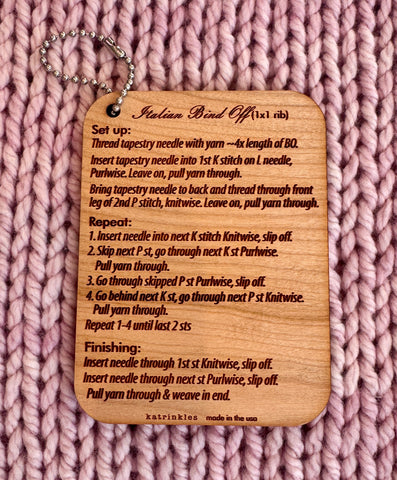 Italian Bind Off (1x1 rib)
Set up:
Thread tapestry needle with yarn ~4x length of BO.
Insert tapestry needle into 1st K stitch on L needle,
Purlwise. Leave on, pull yarn through.
Bring tapestry needle to back and thread through front
leg of 2nd P stitch, knitwise. Leave on, pull yarn through.
Repeat:
1. Insert needle into next K stitch Knitwise, slip off.
2. Skip next P st, go through next K st Purlwise.
Pull yarn through.
3. Go through skipped P st Purlwise, slip off.
4. Go behind next K st, go through next P st Knitwise.
Pull yarn through.
Repeat 1-4 until last 2 sts
Finishing:
Insert needle through 1st st Knitwise, slip off.
Insert needle through next st Purlwise, slip off.
Pull yarn through & weave in end.
katrinkles made in the usa